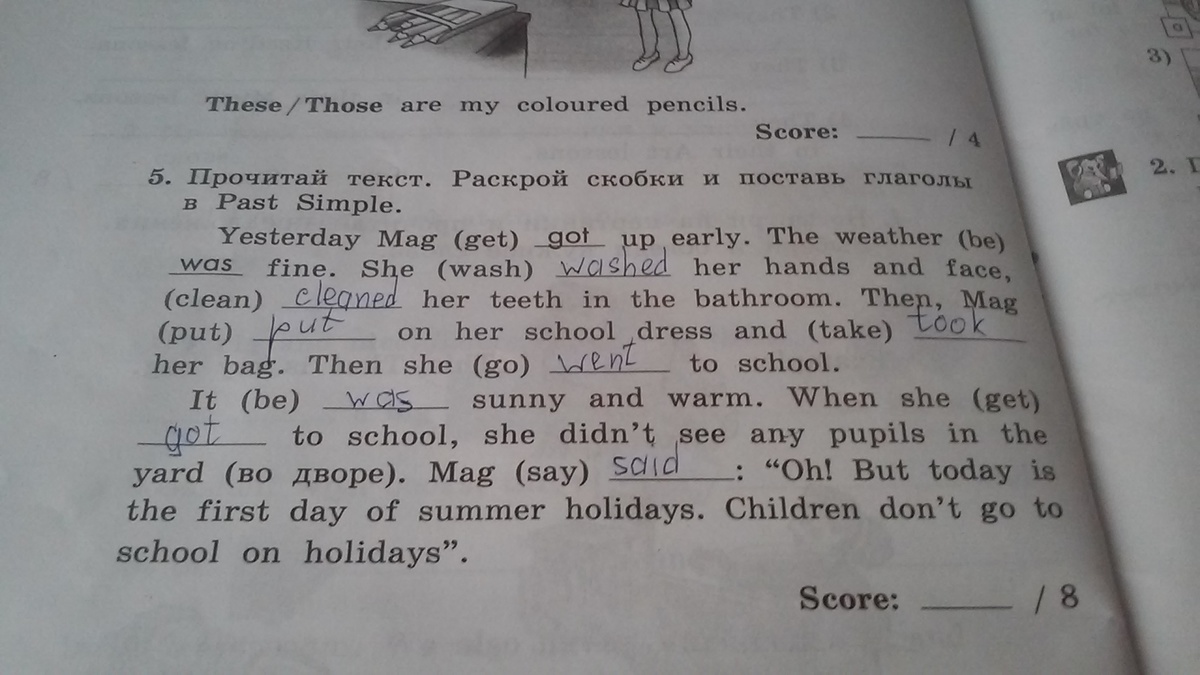 These / Those are my coloured pencils.
Score: ______ / 4
5. Прочитай текст. Раскрой скобки и поставь глаголы
в Past Simple.
Yesterday Mag (get) got up early. The weather (be)
was fine. She (wash) washed her hands and face,
(clean) cleaned her teeth in the bathroom. Then, Mag
(put) put on her school dress and (take) took
her bag. Then she (go) went to school.
It (be) was sunny and warm. When she (get)
got to school, she didn't see any pupils in the
yard (во дворе). Mag (say) said : “Oh! But today is
the first day of summer holidays. Children don't go to
school on holidays”.
Score: ______ / 8
3)
a
2.